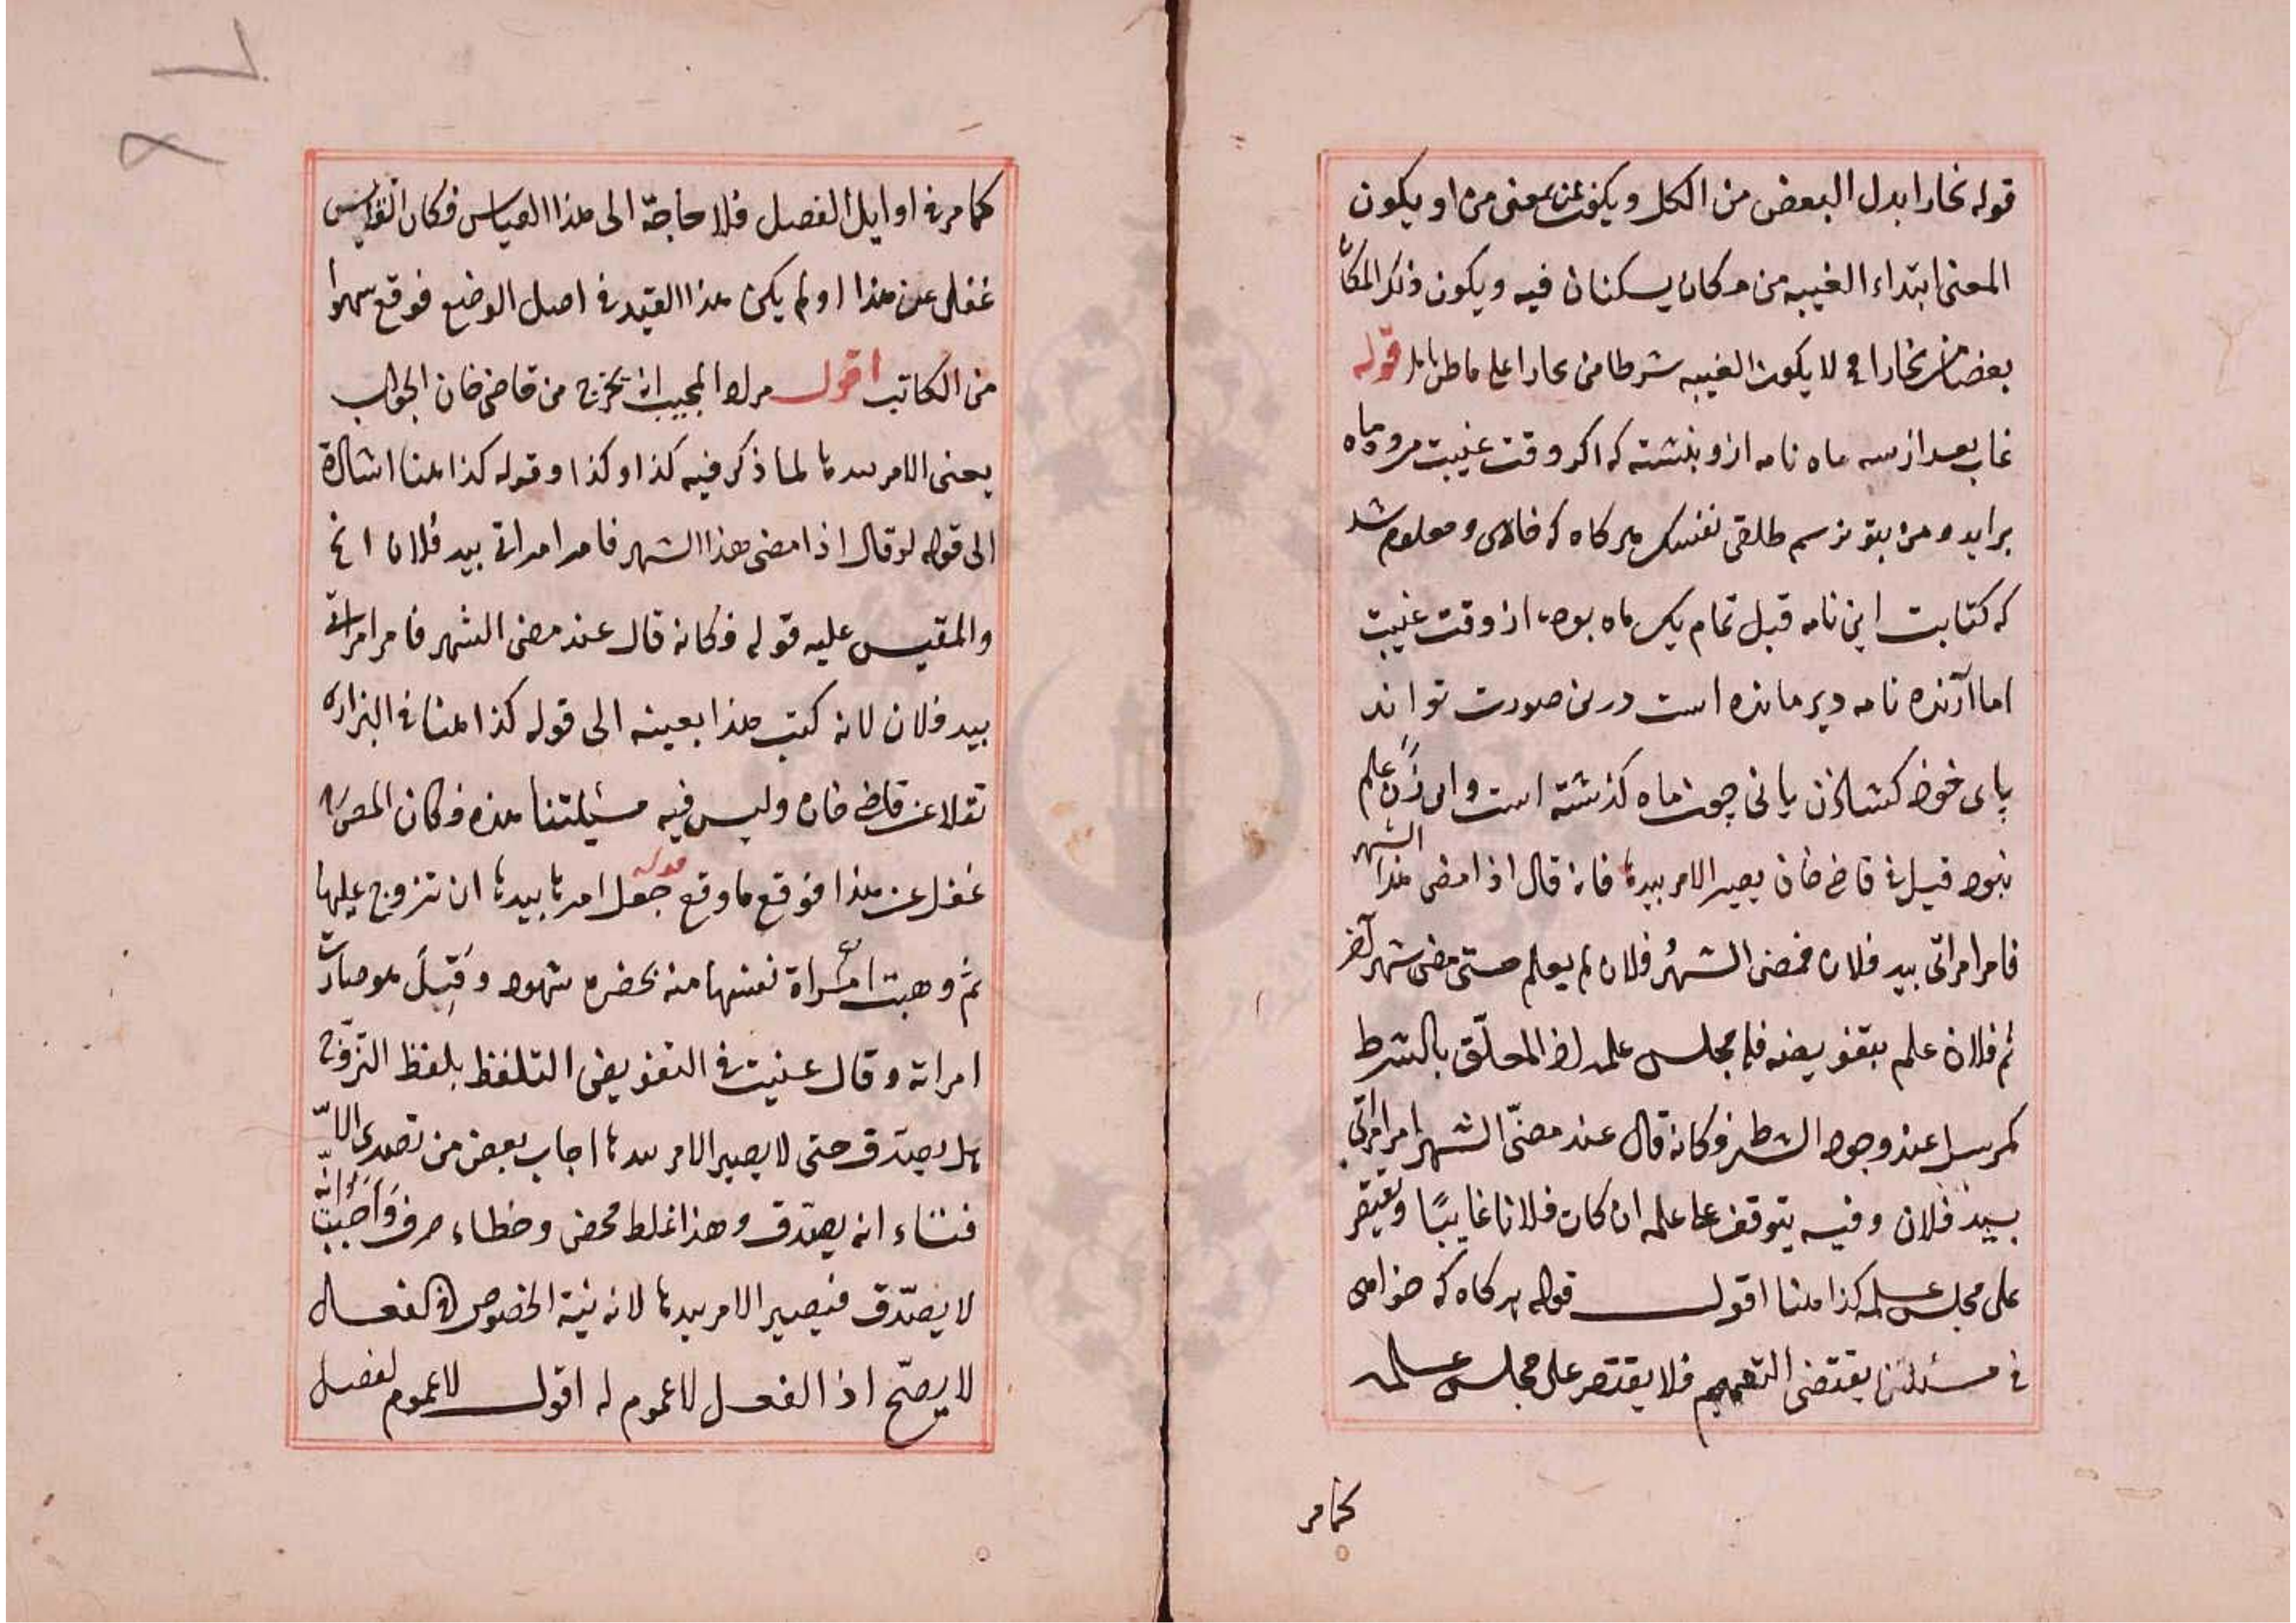 قوله بخارا بدل البعض من الكل ويكون عن بمعنى من او يكون
المعنى ابتداء الغيبه من مكان يسكنان فيه ويكون ذلك المكان
بعضا من بخارا فح لا يكون الغيبه شرطا من بخارا على ما ظن قوله
غاب بعد از سه ماه نامه ازو بنشته كه اكر وقت غيبت مرو ماه
برايد و من بتو نرسم طلقى نفسك هركاه كه خاهى و معلوم شد
كه كتابت اين نامه قبل تمام يك ماه بوده از وقت غيبت
اما آرنده نامه دير مانده است درين صورت تواند
پاى خود كشادن يانى چون ماه كذشته است واين زن علم
نبود قيل فى قاضى خان يصير الامر بيدها فانه قال اذا مضى هذا الشهر
فامر امراتى بيد فلان فمضى الشهر فلان لم يعلم حتى مضى شهر آخر
ثم فلان علم بتفويضه فله مجلس علمه اذ المعلّق بالشرط
كمرسل عند وجود الشرط فكانه قال عند مضىّ الشهر امر امراتى
بيد فلان وفيه يتوقف على علمه ان كان فلانا غايبًا ويقتصر
على مجلس علمه كذا هنا اقول قوله هر كاه كه خواهى
فى مسئلتنا يقتضى التعميم فلا يقتصر على مجلس علمه
كما مر
كما مر فى اوايل الفصل فلا حاجة الى هذا القياس فكان القايس
غفل عن هذا او لم يكن هذا القيد فى اصل الوضع فوقع سهوا
من الكاتب اقول مراد المجيب ان يخرج من قاضى خان الجواب
يعنى الامر بيدها لما ذكر فيه كذا وكذا وقوله كذا هنا اشارة
الى قوله لو قال اذا مضى هذا الشهر فامر امراتى بيد فلان الخ
والمقيس عليه قوله فكانه قال عند مضى الشهر فامر امراتى
بيد فلان لانه كتب هذا بعينه الى قوله كذا هنا فى البزازيه
نقلا عن قاضى خان وليس فيه مسئلتنا هذه فكان المص
غفل عن هذا فوقع ما وقع قوله جعل امرها بيدها ان تزوج عليها
ثم وهبت امراة نفسها منه بحضره شهود وقَبِلَ هو صارت
امراته وقال عنيت فى التفويض التلفظ بلفظ التزوّج
هل يصدق حتى لا يصير الامر بيدها اجاب بعض من تصدى
انه يصدّق وهذا غلط محض وخطاء صرف وَاَجبتُ انّه
لا يُصدّق فيصير الامر بيدها لانه نية الخصوص فى الفعل
لا يصحّ اذ الفعل لا عموم له اقول لا عموم لفصل